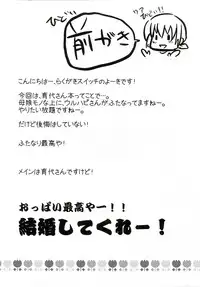 ひどい
前がき
こんにちはー、らくがきスイッチのよーきです！
今回は、育代さん本ってことでー。
母娘モノな上に、ウルハピさんがふたなってますねー。
やりたい放題ですねー。
だけど後悔はしていない！
ふたなり最高や！
メインは育代さんですけど！
おっぱい最高やー！！
結婚してくれー！